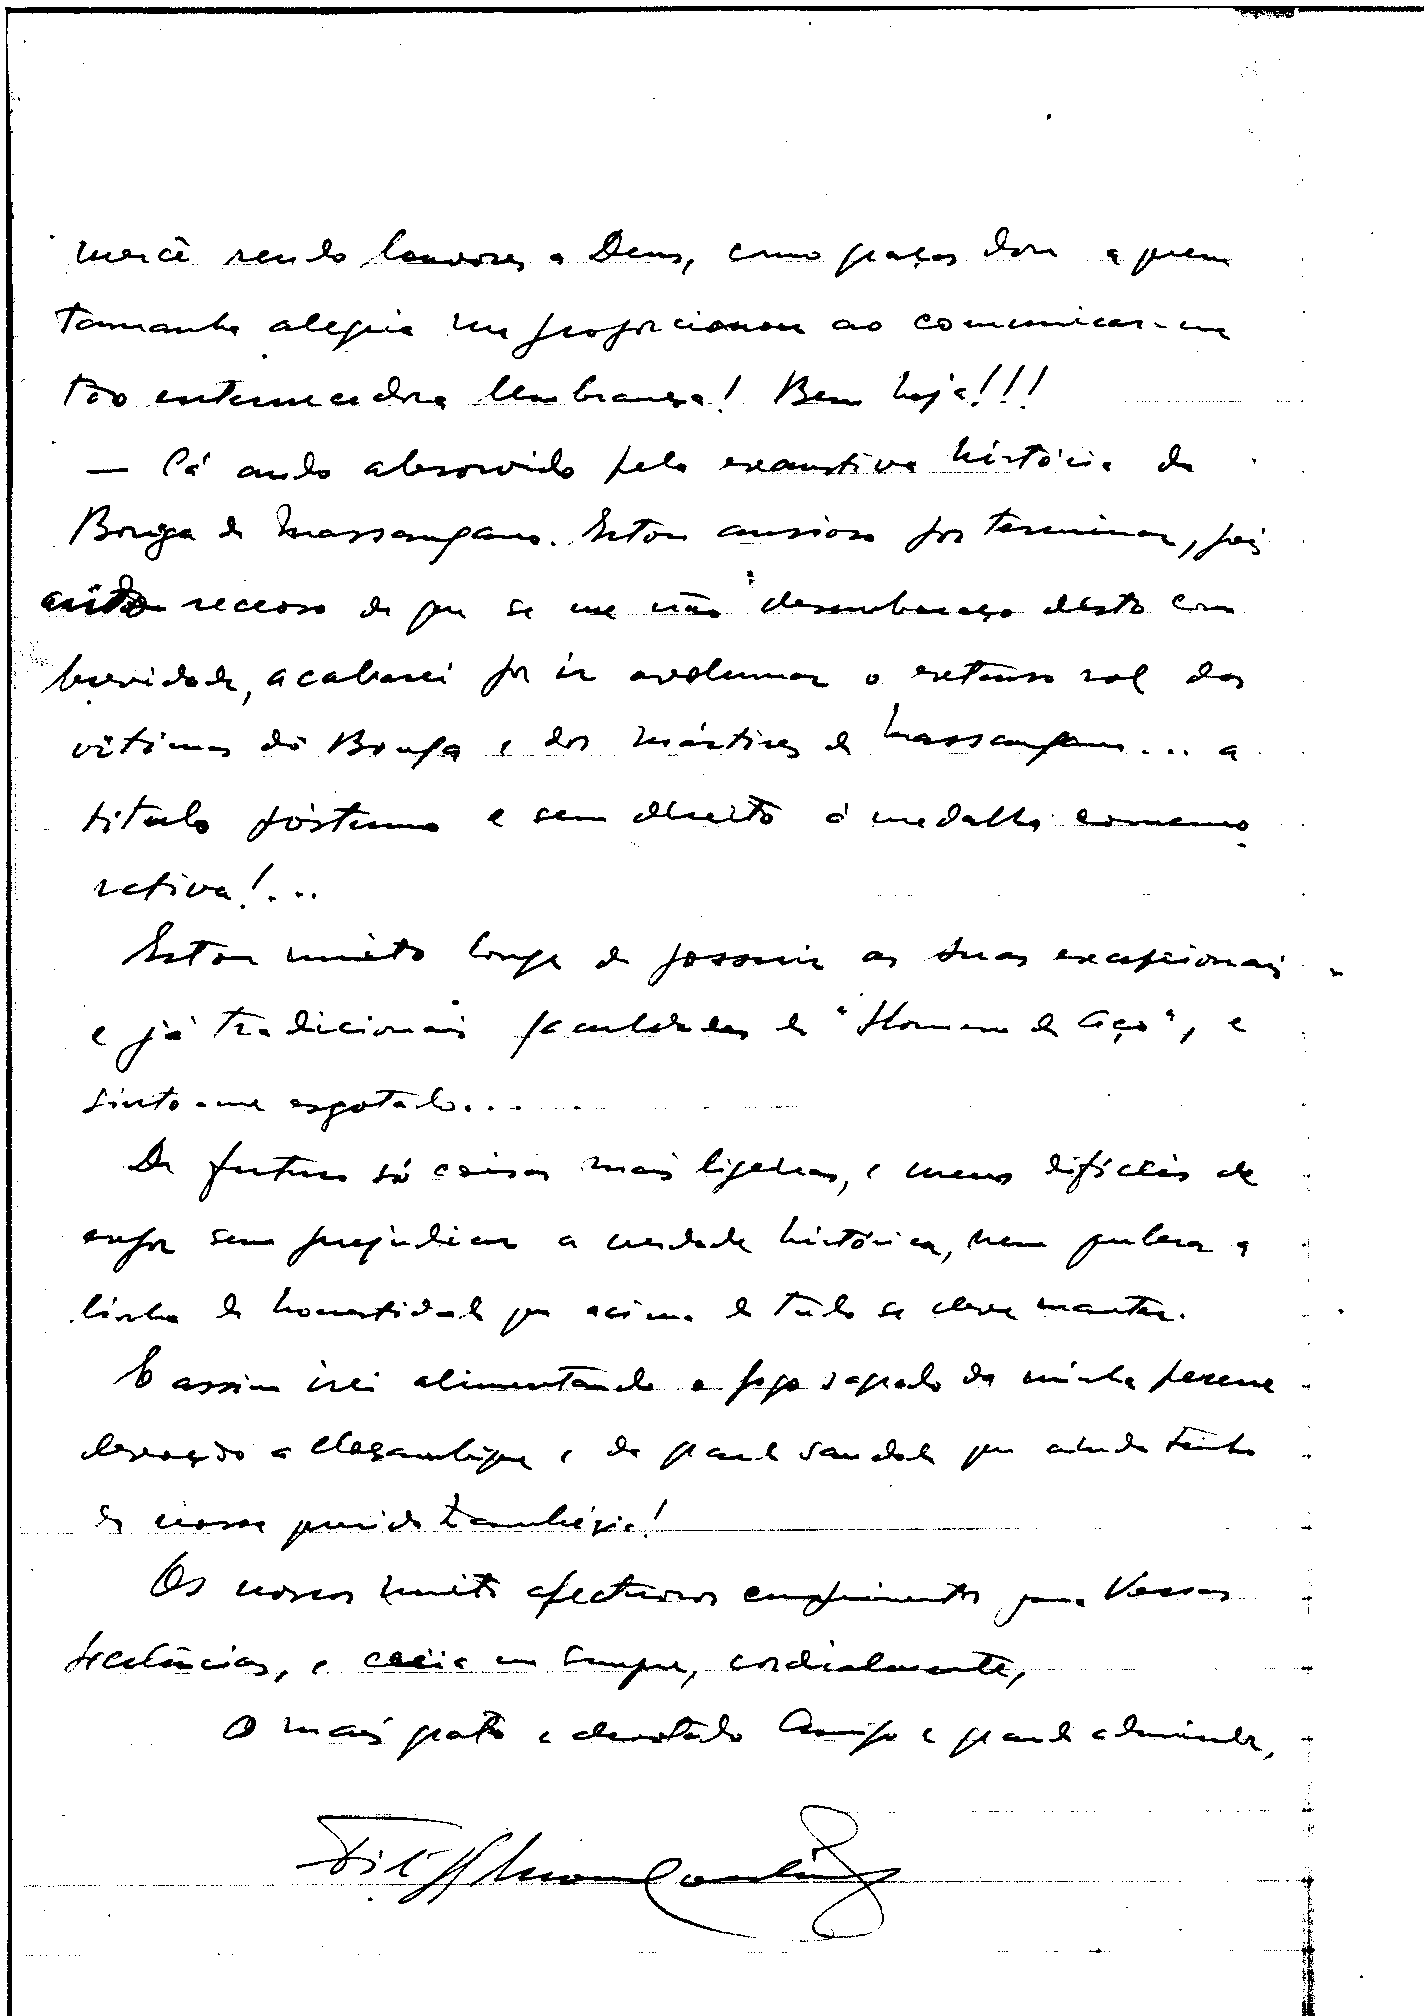 mercê rendo louvores a Deus, como graças dou a quem
tamanha alegria me proporcionou ao comunicar-me
tão enternecedora lembrança! Bem haja!!!
— Cá ando absorvido pela exaustiva história do
Bonga de Massangano. Estou ansioso por terminar, pois
receoso de que se me não desembaraço disto com
brevidade, acabarei por ir avolumar o extenso rol das
vítimas do Bonga e dos mártires de Massangano... a
título póstumo e sem direito à medalha comemo
rativa!...
Estou muito longe de possuir as suas excepcionais
e já tradicionais faculdades de "Homem de Aço", e
sinto-me esgotado...
De futuro só coisas mais ligeiras, e menos difíceis de
expor sem prejudicar a verdade histórica, nem quebrar a
linha de honestidade que acima de tudo se deve manter.
E assim irei alimentando o fogo sagrado da minha perene
devoção a Moçambique e da grande saudade que ainda tenho
da nossa querida Zambézia!
Os nossos muito afectuosos cumprimentos para Vossas
Excelências, e creia-me sempre, cordialmente,
O mais grato e devotado Amigo e grande admirador,